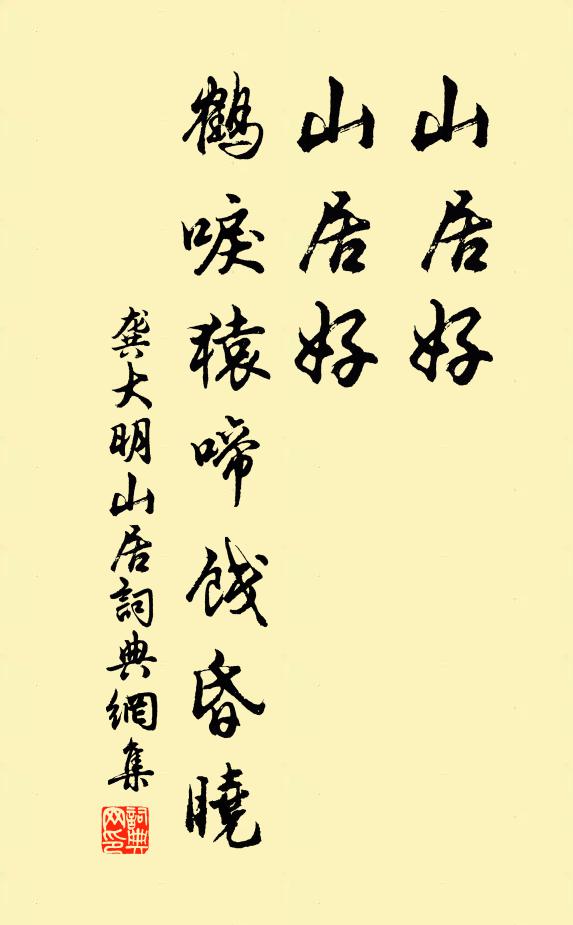 山居好
山居好
鶴唳猿啼餞昏曉
龔大明山居詞典網集
詞典網印